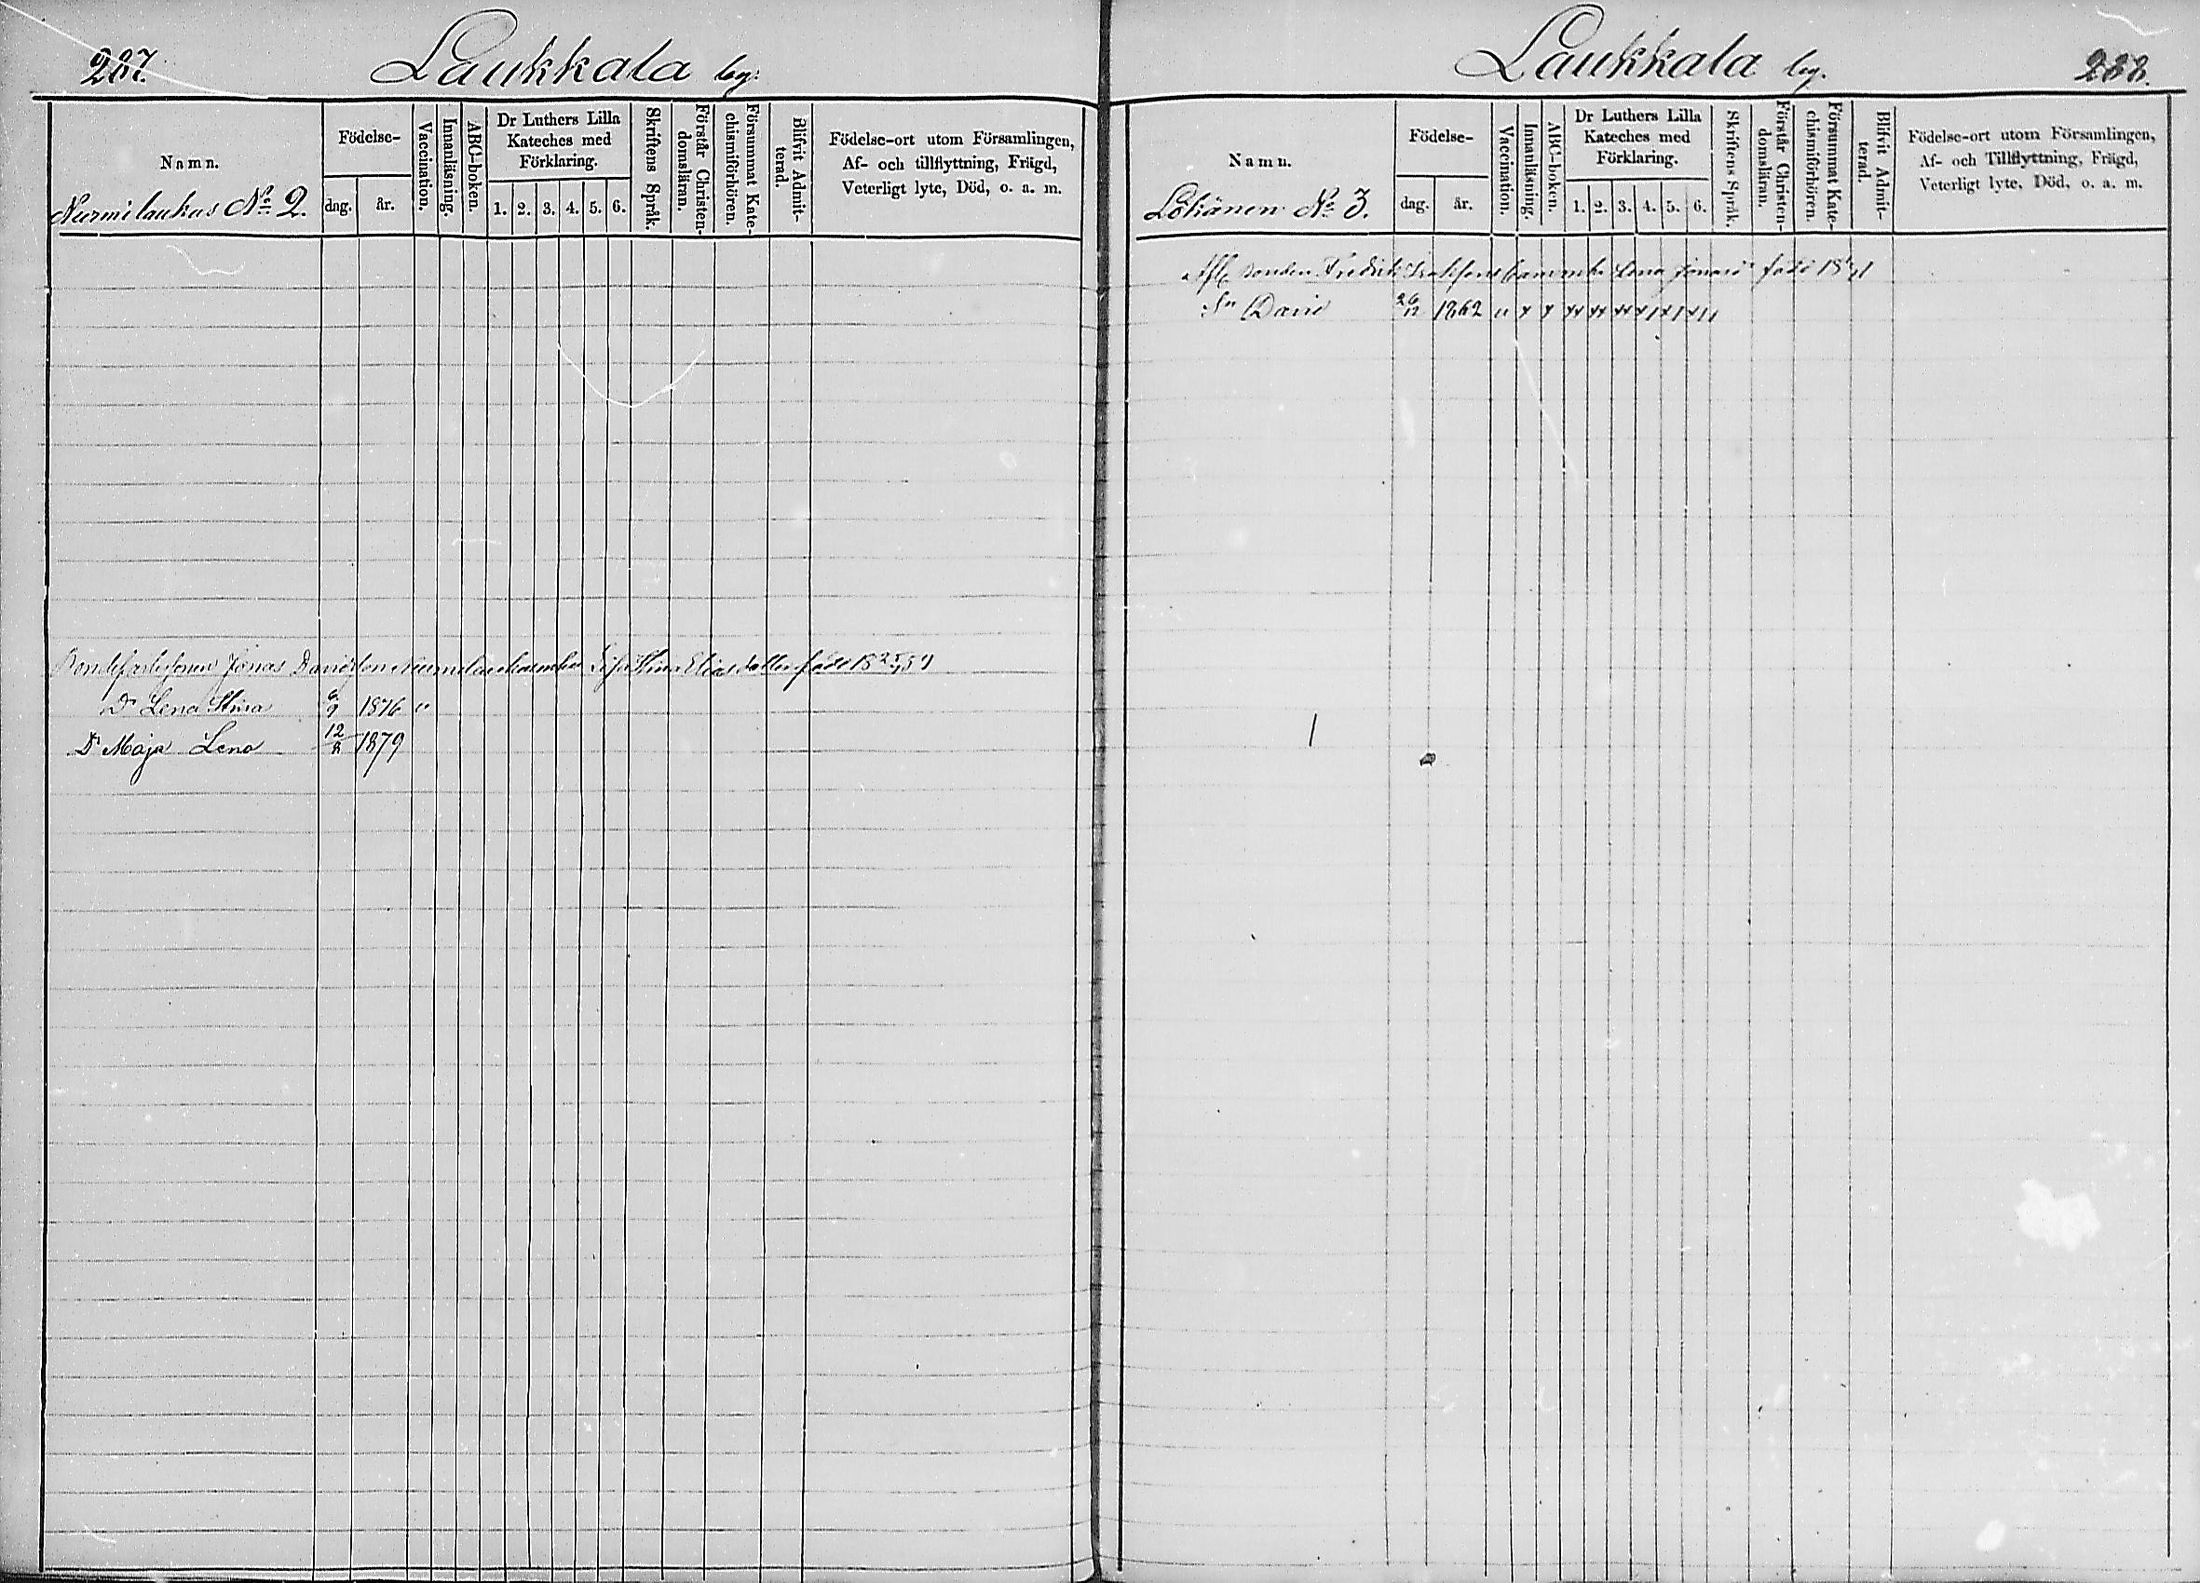 287.
Laukkala by:
Namn.
Nurmilaukas No 2.
Födelse-
dag.
år.
Vaccination.
Innanläsning.
ABC-boken.
Dr Luthers Lilla
Kateches med
Förklaring.
1. 2. 3. 4. 5. 6.
Skriftens Språk.
Förstår Christen-
domsläran.
Försummat Kate-
chismiförhören.
Blifvit Admit-
terad.
Födelse-ort utom Församlingen,
Af- och tillflyttning, Frägd,
Veterligt lyte, Död, o. a. m.
Jonas Davidson Stina Elias dotter född
Dr Lena Stina 6/9 1876 "
Dr Maja Lena 12/8 1879
Laukkala by.
288.
Namn.
Löhänen No 3.
Födelse-
dag.
år.
Vaccination.
Innanläsning.
ABC-boken.
Dr Luthers Lilla
Kateches med
Förklaring.
1. 2. 3. 4. 5. 6.
Skriftens Språk.
Förstår Christen-
domsläran.
Försummat Kate-
chismiförhören.
Blifvit Admit-
terad.
Födelse-ort utom Församlingen,
Af- och Tillflyttning, Frägd,
Veterligt lyte, Död, o. a. m.
Afl. bonden Fredrik enka Lena
Sn David 26/12 1862 "